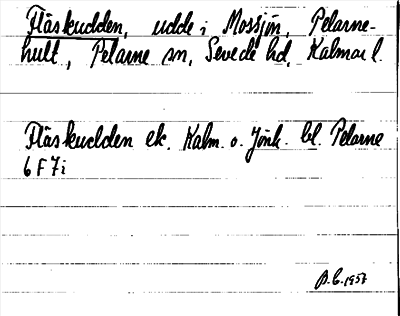 Fläskudden, udde i Mossjön, Pelarne-
hult, Pelarne sn, Sevede hd, Kalmar l.
Fläskudden ek. Kalm. o. Jönk. bl. Pelarne
6 F 7 i
B.E. 1957